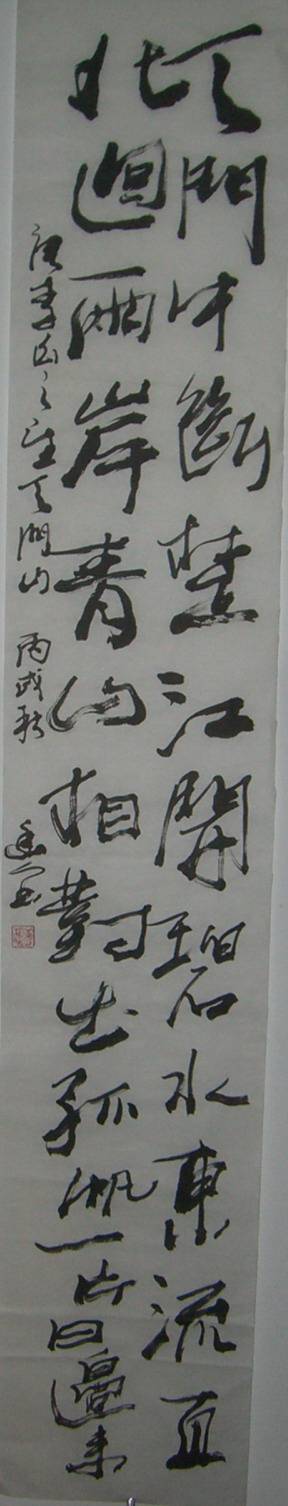 天門中斷楚江開碧水東流直
北迴兩岸青山相對出孤帆一片日邊來
唐李白之望天門山 丙戌秋